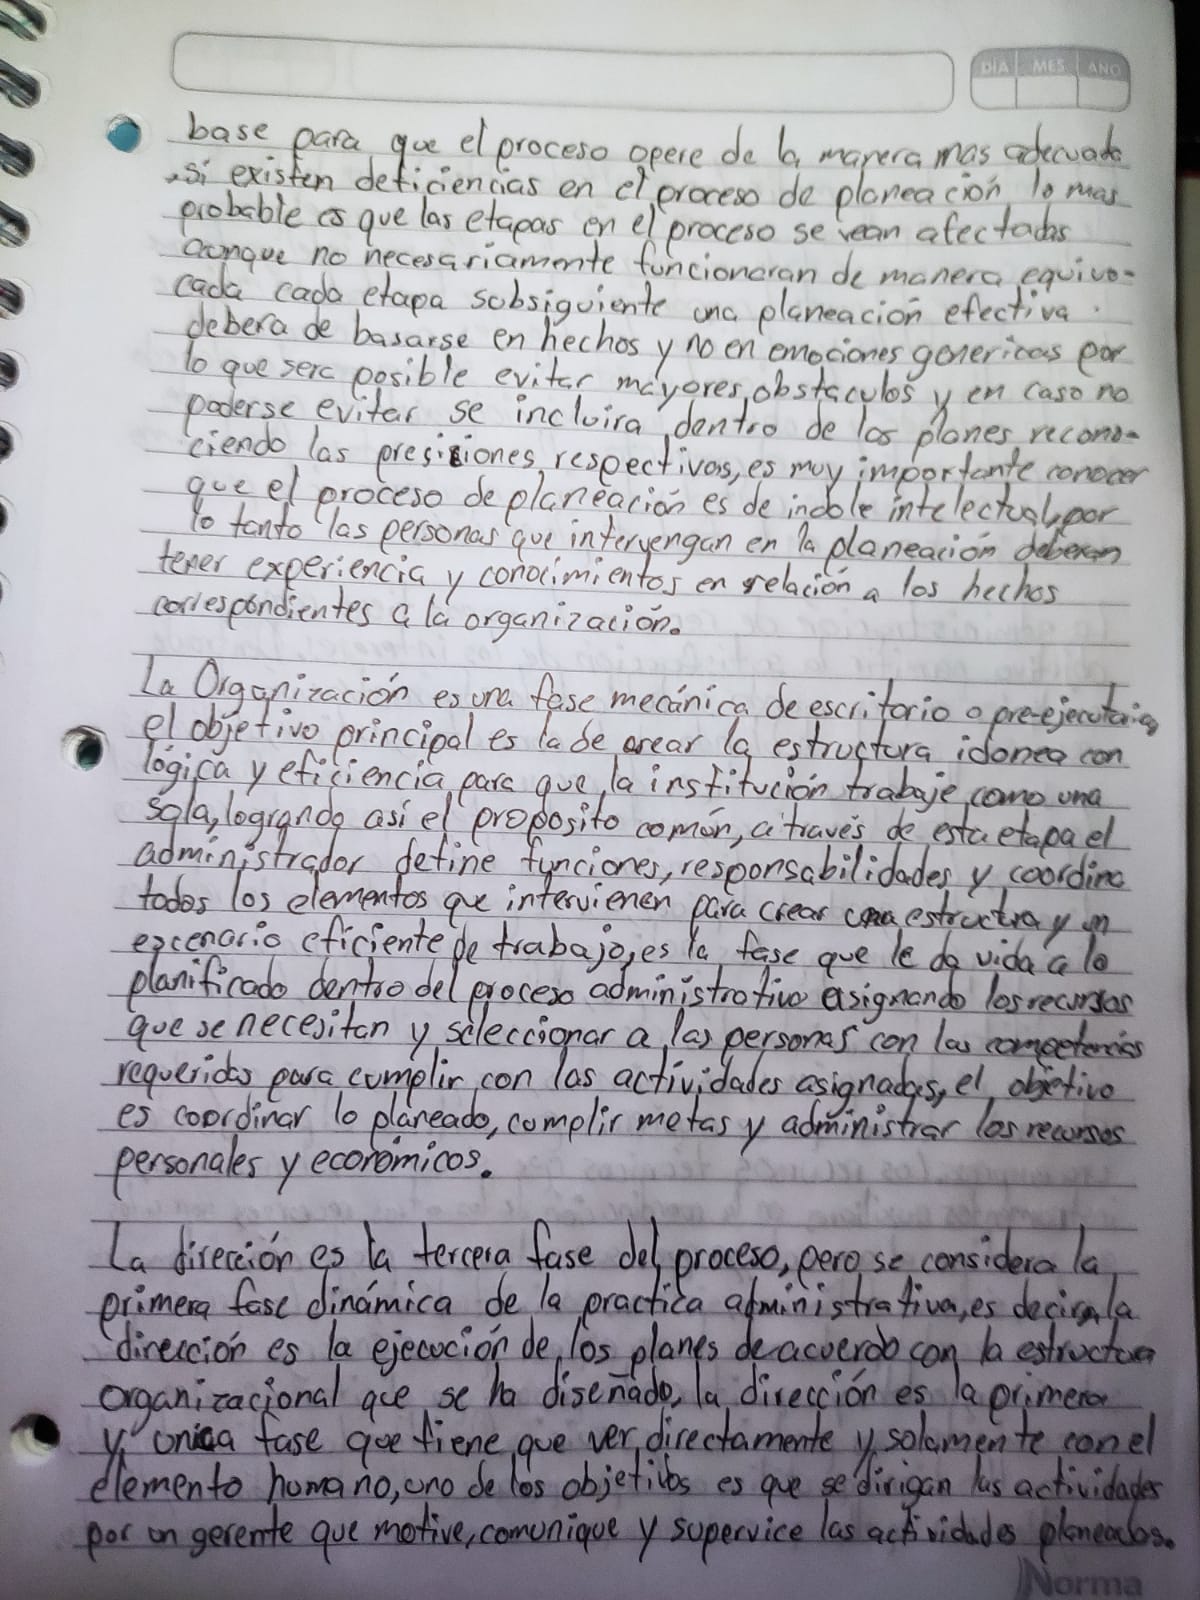 DÍA MES AÑO
base para que el proceso opere de la manera mas adecuada
si existen deficiencias en el proceso de planeación, lo mas
probable es que las etapas en el proceso se vean afectadas
aunque no necesariamente funcionaran de manera equivo-
cada cada etapa subsiguiente una planeación efectiva
debera de basarse en hechos y no en emociones genericas por
lo que sera posible evitar mayores obstaculos y en caso no
poderse evitar se incluira dentro de los planes recono-
ciendo las presiciones respectivas, es muy importante conocer
que el proceso de planeación es de indole intelectual, por
lo tanto las personas que intervengan en la planeación deberan
tener experiencia y conocimientos en relación a los hechos
correspondientes a la organización.
La Organización es una fase mecánica de escritorio o pre-ejecutaria,
el objetivo principal es la de crear la estructura idonea con
lógica y eficiencia para que la institución trabaje como una
sola, logrando así el proposito común, a través de esta etapa el
administrador define funciones, responsabilidades y coordina
todos los elementos que intervienen para crear una estructra y un
escenario eficiente de trabajo, es la fase que le da vida a lo
planificado dentro del proceso administrativo asignando los recursos
que se necesitan y seleccionar a las personas con las competencias
requeridas para cumplir con las actividades asignadas, el objetivo
es coordinar lo planeado, cumplir metas y administrar los recursos
personales y económicos.
La dirección es la tercera fase del proceso, pero se considera la
primera fase dinámica de la practica administrativa, es decir, la
dirección es la ejecución de los planes de acuerdo con la estructura
organizacional que se ha diseñado, la dirección es la primera
y unica fase que tiene que ver directamente y solamente con el
elemento humano, uno de los objetivos es que se dirigan las actividades
por un gerente que motive, comunique y supervice las actividades planeadas.
Norma